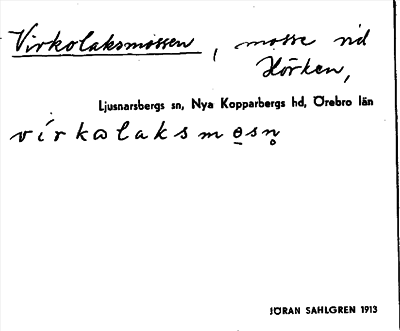 Virkolaksmossen, mosse vid
Hörken,
Ljusnarsbergs sn, Nya Kopparbergs hd, Örebro län
vírkωlaksmo̱sn̥
JÖRAN SAHLGREN 1913